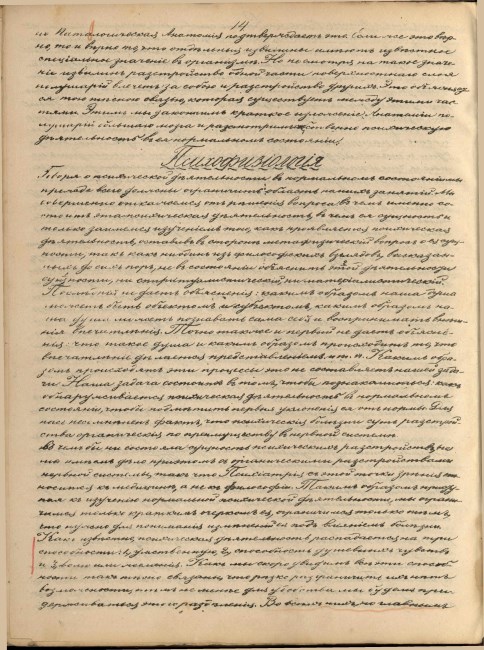 14
и Патологическая Анатомия подтверждаетъ это. Если же это вер-
но, то и верно то, что отдельныя извилины имеютъ известное
специальное значеніе въ организмѣ. Но не смотря на такое значе-
ніе извилинъ разстройство одной части поверхностнаго слоя
полушарій влечетъ за собою и разстройство другихъ. Это объясняет-
ся тою тесною связью, которая существуетъ между этими час-
тями. Этимъ мы закончимъ краткое изложеніе Анатоміи по-
лушарій большаго мозга и разсмотримъ психическую
деятельность въ ея нормальномъ состояніи.
Психофизіологія
Говоря о психической деятельности въ нормальномъ состояніи мы
прежде всего должны ограничить область нашихъ занятій. Мы
совершенно отказываемся отъ решенія вопроса въ чемъ именно со-
стоитъ эта психическая деятельность, въ чемъ ея сущность и
только займемся изученіемъ того, какъ проявляется психическая
деятельность, оставивъ въ стороне метафизическій вопросъ о ея сущ-
ности, такъ какъ ни одинъ изъ философскихъ взглядовъ, высказан-
ныхъ до сихъ поръ, не въ состояніи объяснить этой деятельности
сущности, ни спиритуалистическій, ни матеріалистическій.
Последній не даетъ объясненія: какимъ образомъ наша душа
можетъ быть объектомъ и субъектомъ, какимъ образомъ на-
ша душа можетъ познавать сама себя и воспринимать
впечатленія. Точно также и первый не даетъ объясне-
нія: что такое душа и какимъ образомъ происходитъ то, что
впечатленіе делается представленіемъ и т. п. Какимъ обра-
зомъ происходятъ эти процессы это не составляетъ нашей зада-
чи. Наша задача состоитъ въ томъ, чтобы познакомиться какъ
обнаруживается психическая деятельность въ нормальномъ
состояніи, чтобы подметить первыя уклоненія ея отъ нормы. Для
насъ несомненъ фактъ, что психическія болезни суть разстрой-
ства органическія по преимуществу нервной системы
въ чемъ бы ни состояла сущность психическихъ разстройствъ, но
мы имеемъ дело прямо съ органическими разстройствами
нервной системы, такъ что Психіатрія съ этой точки зренія от-
носится къ медицине, а не къ философіи. Такимъ образомъ присту-
пая къ изученію нормальной психической деятельности, мы ограни-
чимся только краткимъ очеркомъ ея, ограничимся только темъ,
что нужно для пониманія измененій ея подъ вліяніемъ болезни.
Какъ известно, психическая деятельность распадается на три
способности: 1, умственную, 2, способность душевныхъ чувствъ
и 3, волю или хотеніе. Какъ мы скоро увидимъ все эти способ-
ности такъ тесно связаны, что резко разграничить ихъ нетъ
возможности; темъ не менее для удобства мы будемъ при-
держиваться этого разделенія. Во всехъ нихъ, но главнымъ